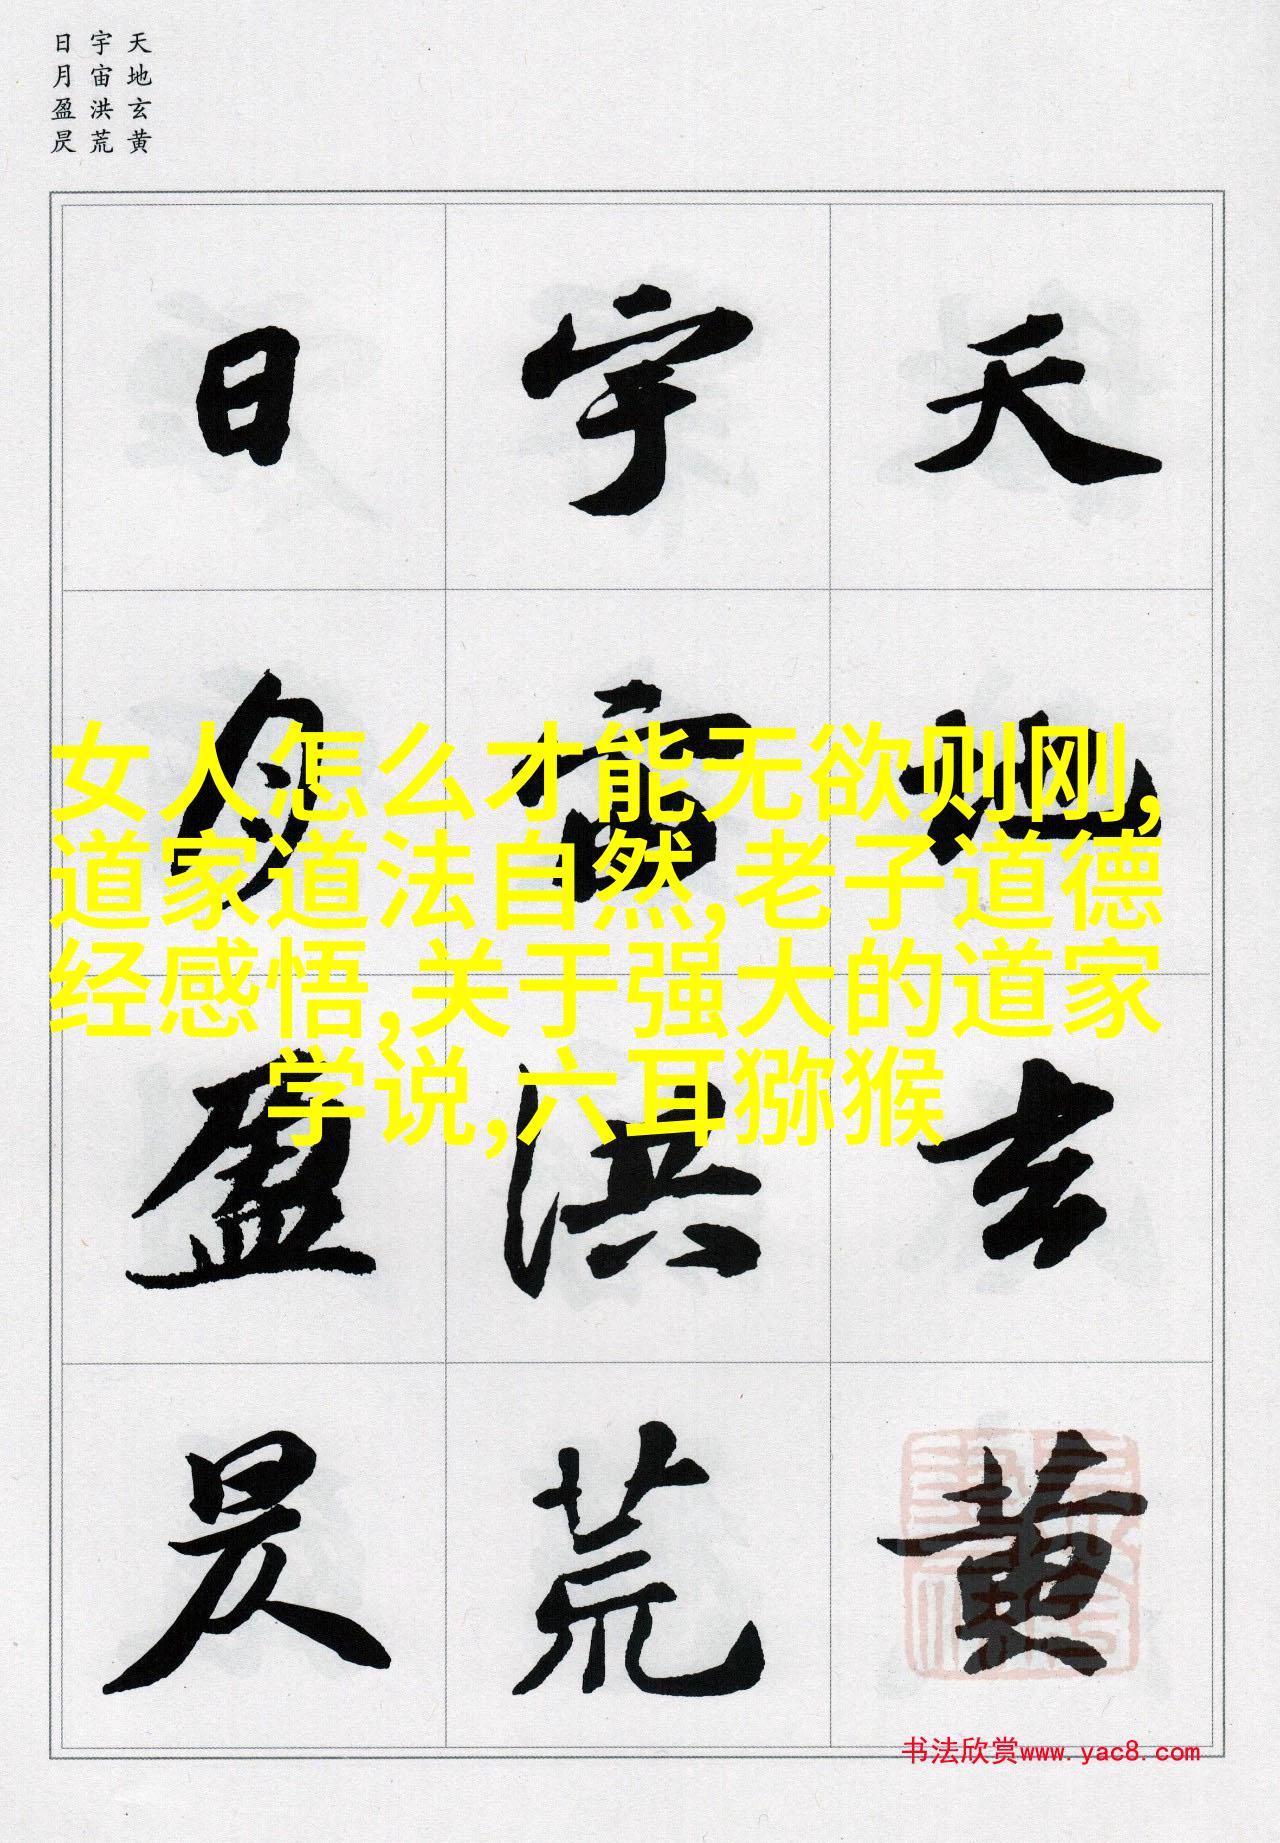 天地玄黄
宇宙洪荒
日月盈昃
天地玄黄
宇宙洪荒
日月盈昃
女人怎么才能无欲则刚,
道家道法自然,老子道德
经感悟,关于强大的道家
学说,六耳猕猴
书法欣赏www.yac8.com